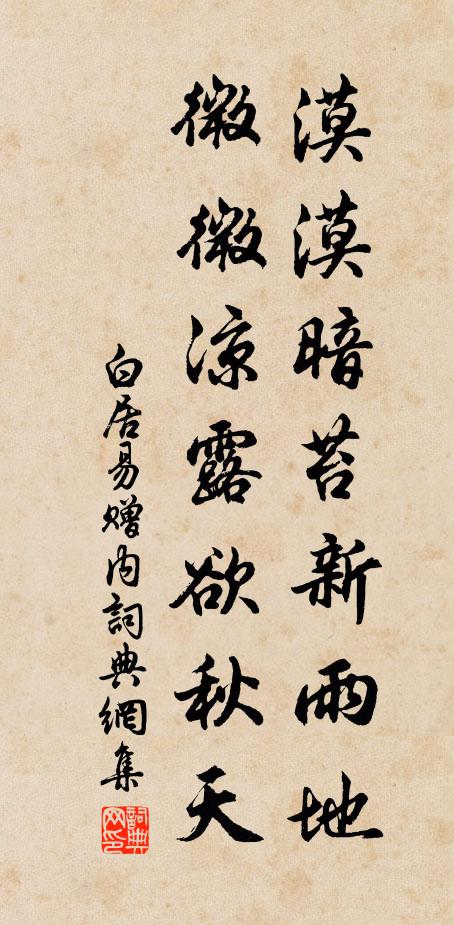 漠漠暗苔新雨地
微微涼露欲秋天
白居易贈内詞典網集
詞典网印